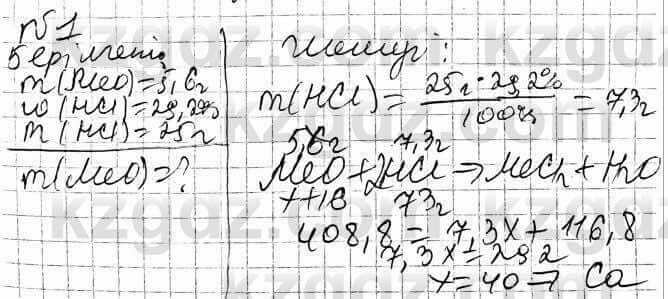 №1
Берілгені:
m(MeO)=5,6г
w(HCl)=29,2%
m(HCl)=25г
m(MeO)=?
Шешуі:
m(HCl)= 25г·29,2% / 100% = 7,3г
5,6г 7,3г
MeO+2HCl→MeCl₂+H₂O
x+16 73г
408,8=7,3x+116,8
7,3x=292
x=40 ⇒ Ca